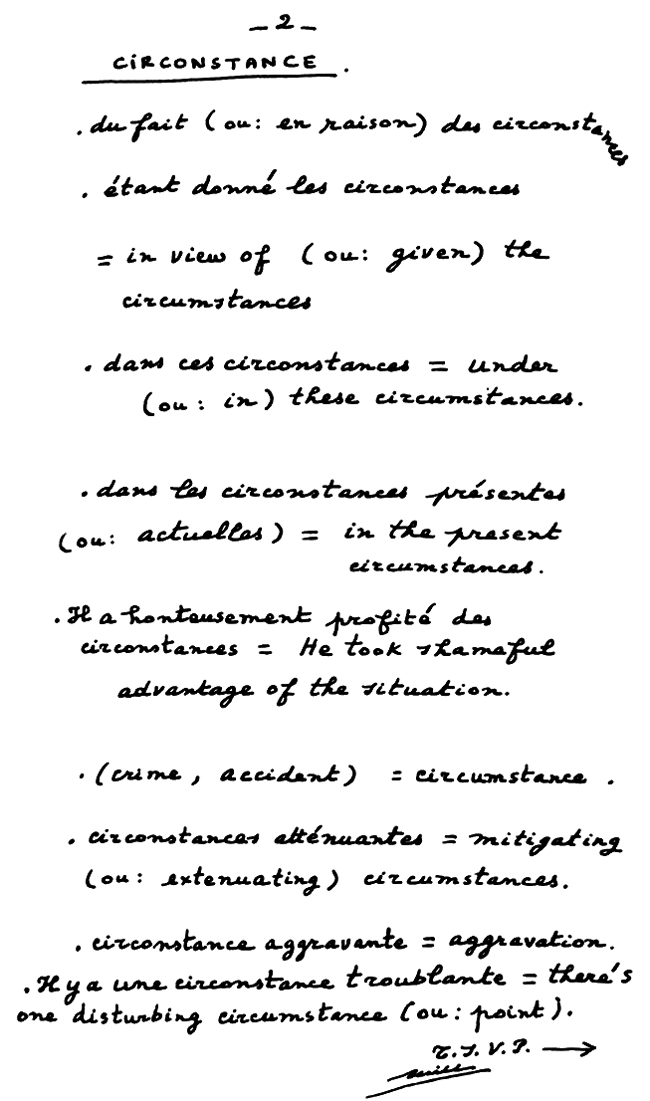 - 2 -
CIRCONSTANCE.
. du fait (ou: en raison) des circonstances
. étant donné les circonstances
= in view of (ou: given) the
circumstances
. dans ces circonstances = under
(ou: in) these circumstances.
. dans les circonstances présentes
(ou: actuelles) = in the present
circumstances.
. Il a honteusement profité des
circonstances = He took shameful
advantage of the situation.
. (crime, accident) = circumstance.
. circonstances atténuantes = mitigating
(ou: extenuating) circumstances.
. circonstance aggravante = aggravation.
. Il y a une circonstance troublante = there's
one disturbing circumstance (ou: point).
T.S.V.P. →